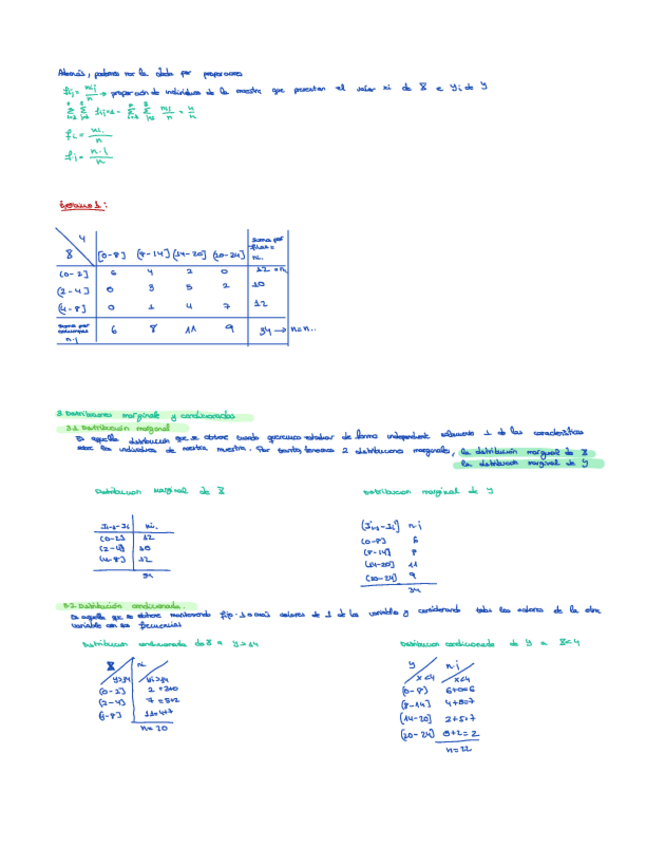 Además, podemos ver la dada por proporciones
fij = nij/n → proporción de individuos de la muestra que presentan el valor xi de X e Yj de Y
Σ Σ fij = 1 = Σ Σ nij/n = n/n
fi. = ni./n
f.j = n.j/n
Ejercicio 1:
Y
X [0-8] (8-14] (14-20] (20-24] Suma por filas = ni.
(0-2] 6 4 2 0 12 = n1
(2-4] 0 3 5 2 10
(4-8] 0 1 4 7 12
Suma por columnas n.j 6 8 11 9 34 → n = n..
3. Distribuciones marginales y condicionadas
3.1 Distribución marginal
Es aquella distribución que se obtiene cuando queremos estudiar de forma independiente solamente 1 de las características
entre los individuos de nuestra muestra. Por tanto, tenemos 2 distribuciones marginales, la distribución marginal de X
la distribución marginal de Y
Distribución marginal de X
Distribución marginal de Y
Ii-1-Ii ni.
(0-2] 12
(2-4] 10
(4-8] 12
34
(Ij-1-Ij] n.j
(0-8] 6
(8-14] 8
(14-20] 11
(20-24] 9
34
3.2 Distribución condicionada.
Es aquella que se obtiene manteniendo fijo 1 o más valores de 1 de las variables y considerando todos los valores de la otra
variable con sus frecuencias
Distribución condicionada de X a Y>14
Distribución condicionada de Y a X<4
X ni
Y>14 Y>14
(0-2] 2 = 2+0
(2-4] 7 = 5+2
(4-8] 11 = 4+7
n = 20
Y n.j
X<4 X<4
(0-8] 6+0=6
(8-14] 4+3=7
(14-20] 2+5=7
(20-24] 0+2=2
n = 22